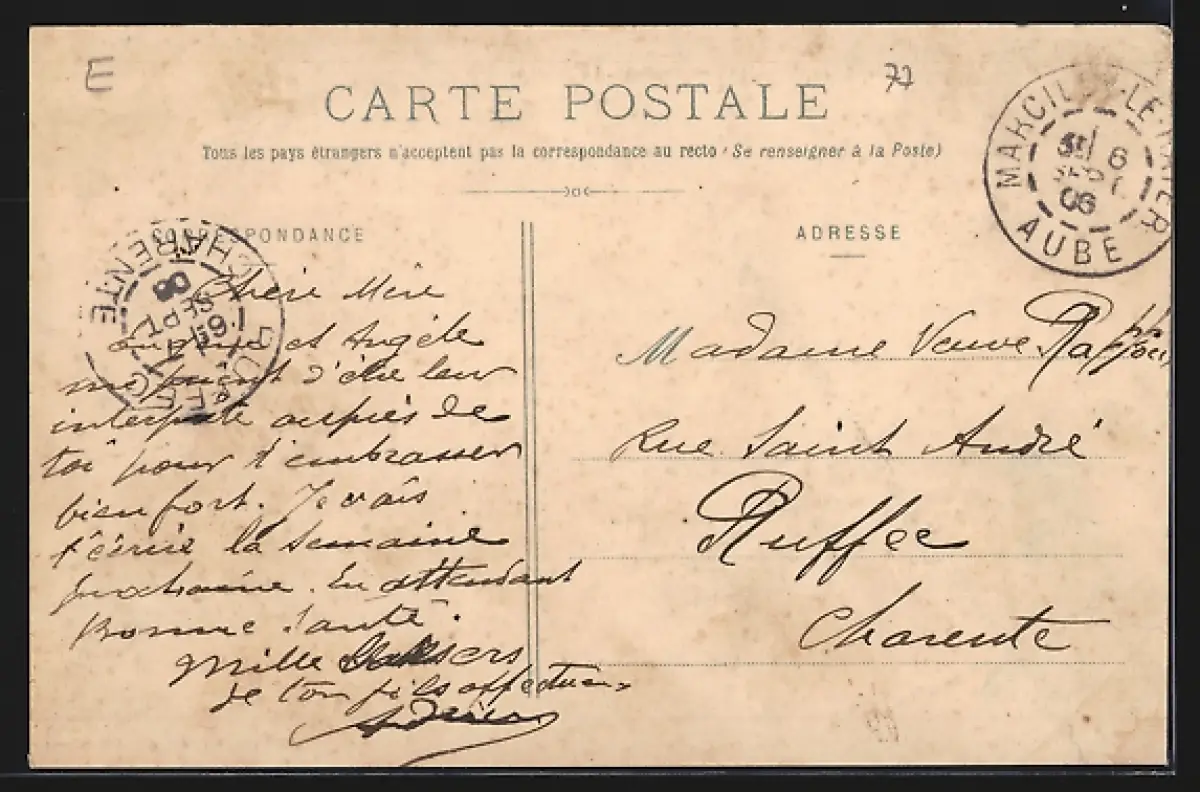 E
77
CARTE POSTALE
Tous les pays étrangers n'acceptent pas la correspondance au recto (Se renseigner à la Poste)
CORRESPONDANCE
ADRESSE
MARCILLY-LE-HAYER
6
SEPT
06
AUBE
RUFFEC
CHARENTE
SEPT
06
Chère Mère
et Angèle
me prient d'être leur
interprète auprès de
toi pour t'embrasser
bien fort. Je vais
t'écrire la semaine
prochaine. En attendant
Bonne santé.
Mille
de ton fils affectueux
Madame Veuve
Rue Saint André
Ruffec
Charente